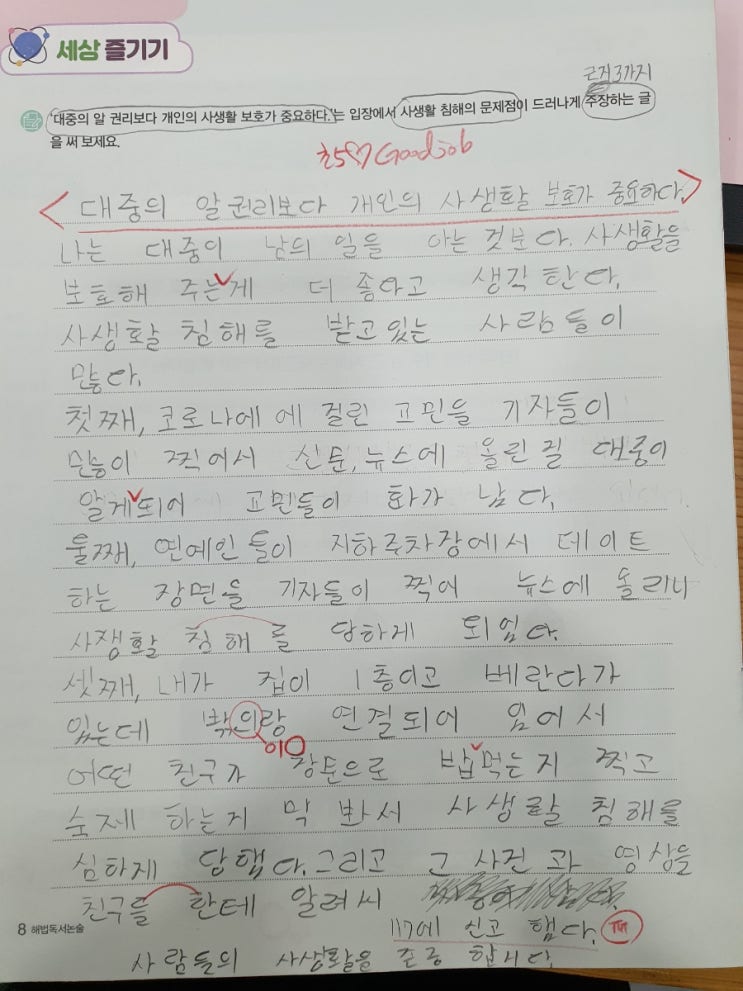 세상 즐기기
근거3가지
'대중의 알 권리보다 개인의 사생활 보호가 중요하다.'는 입장에서 사생활 침해의 문제점이 드러나게 주장하는 글
을 써 보세요.
Good job
<대중의 알권리보다 개인의 사생활 보호가 중요하다>
나는 대중이 남의 일을 아는 것분다. 사생활을
보호해 주는게 더 좋다고 생각 한다.
사생활 침해를 받고있는 사람들이
많다.
첫째, 코로나에 에 걸린 고민을 기자들이
많이 찍어서 신문, 뉴스에 올린걸 대중이
알게되어 고민들이 화가 났다.
둘째, 연예인들이 지하주차장에서 데이트
하는 장면을 기자들이 찍어 뉴스에 올리니
사쟁활 침해를 당하게 되었다.
셋째, 내가 집이 1층이고 베란다가
있는데 밖의랑 연결되어 있어서
이
어떤 친구가 창문으로 밥먹는지 찍고
숙제 하는지 막 봐서 사생활 침해를
심하게 당했다. 그리고 그 사진 과 영상을
친구들 한테 알려서
117에 신고 했다.
8 해법독서논술
사람들의 사생활을 존중 합니다.